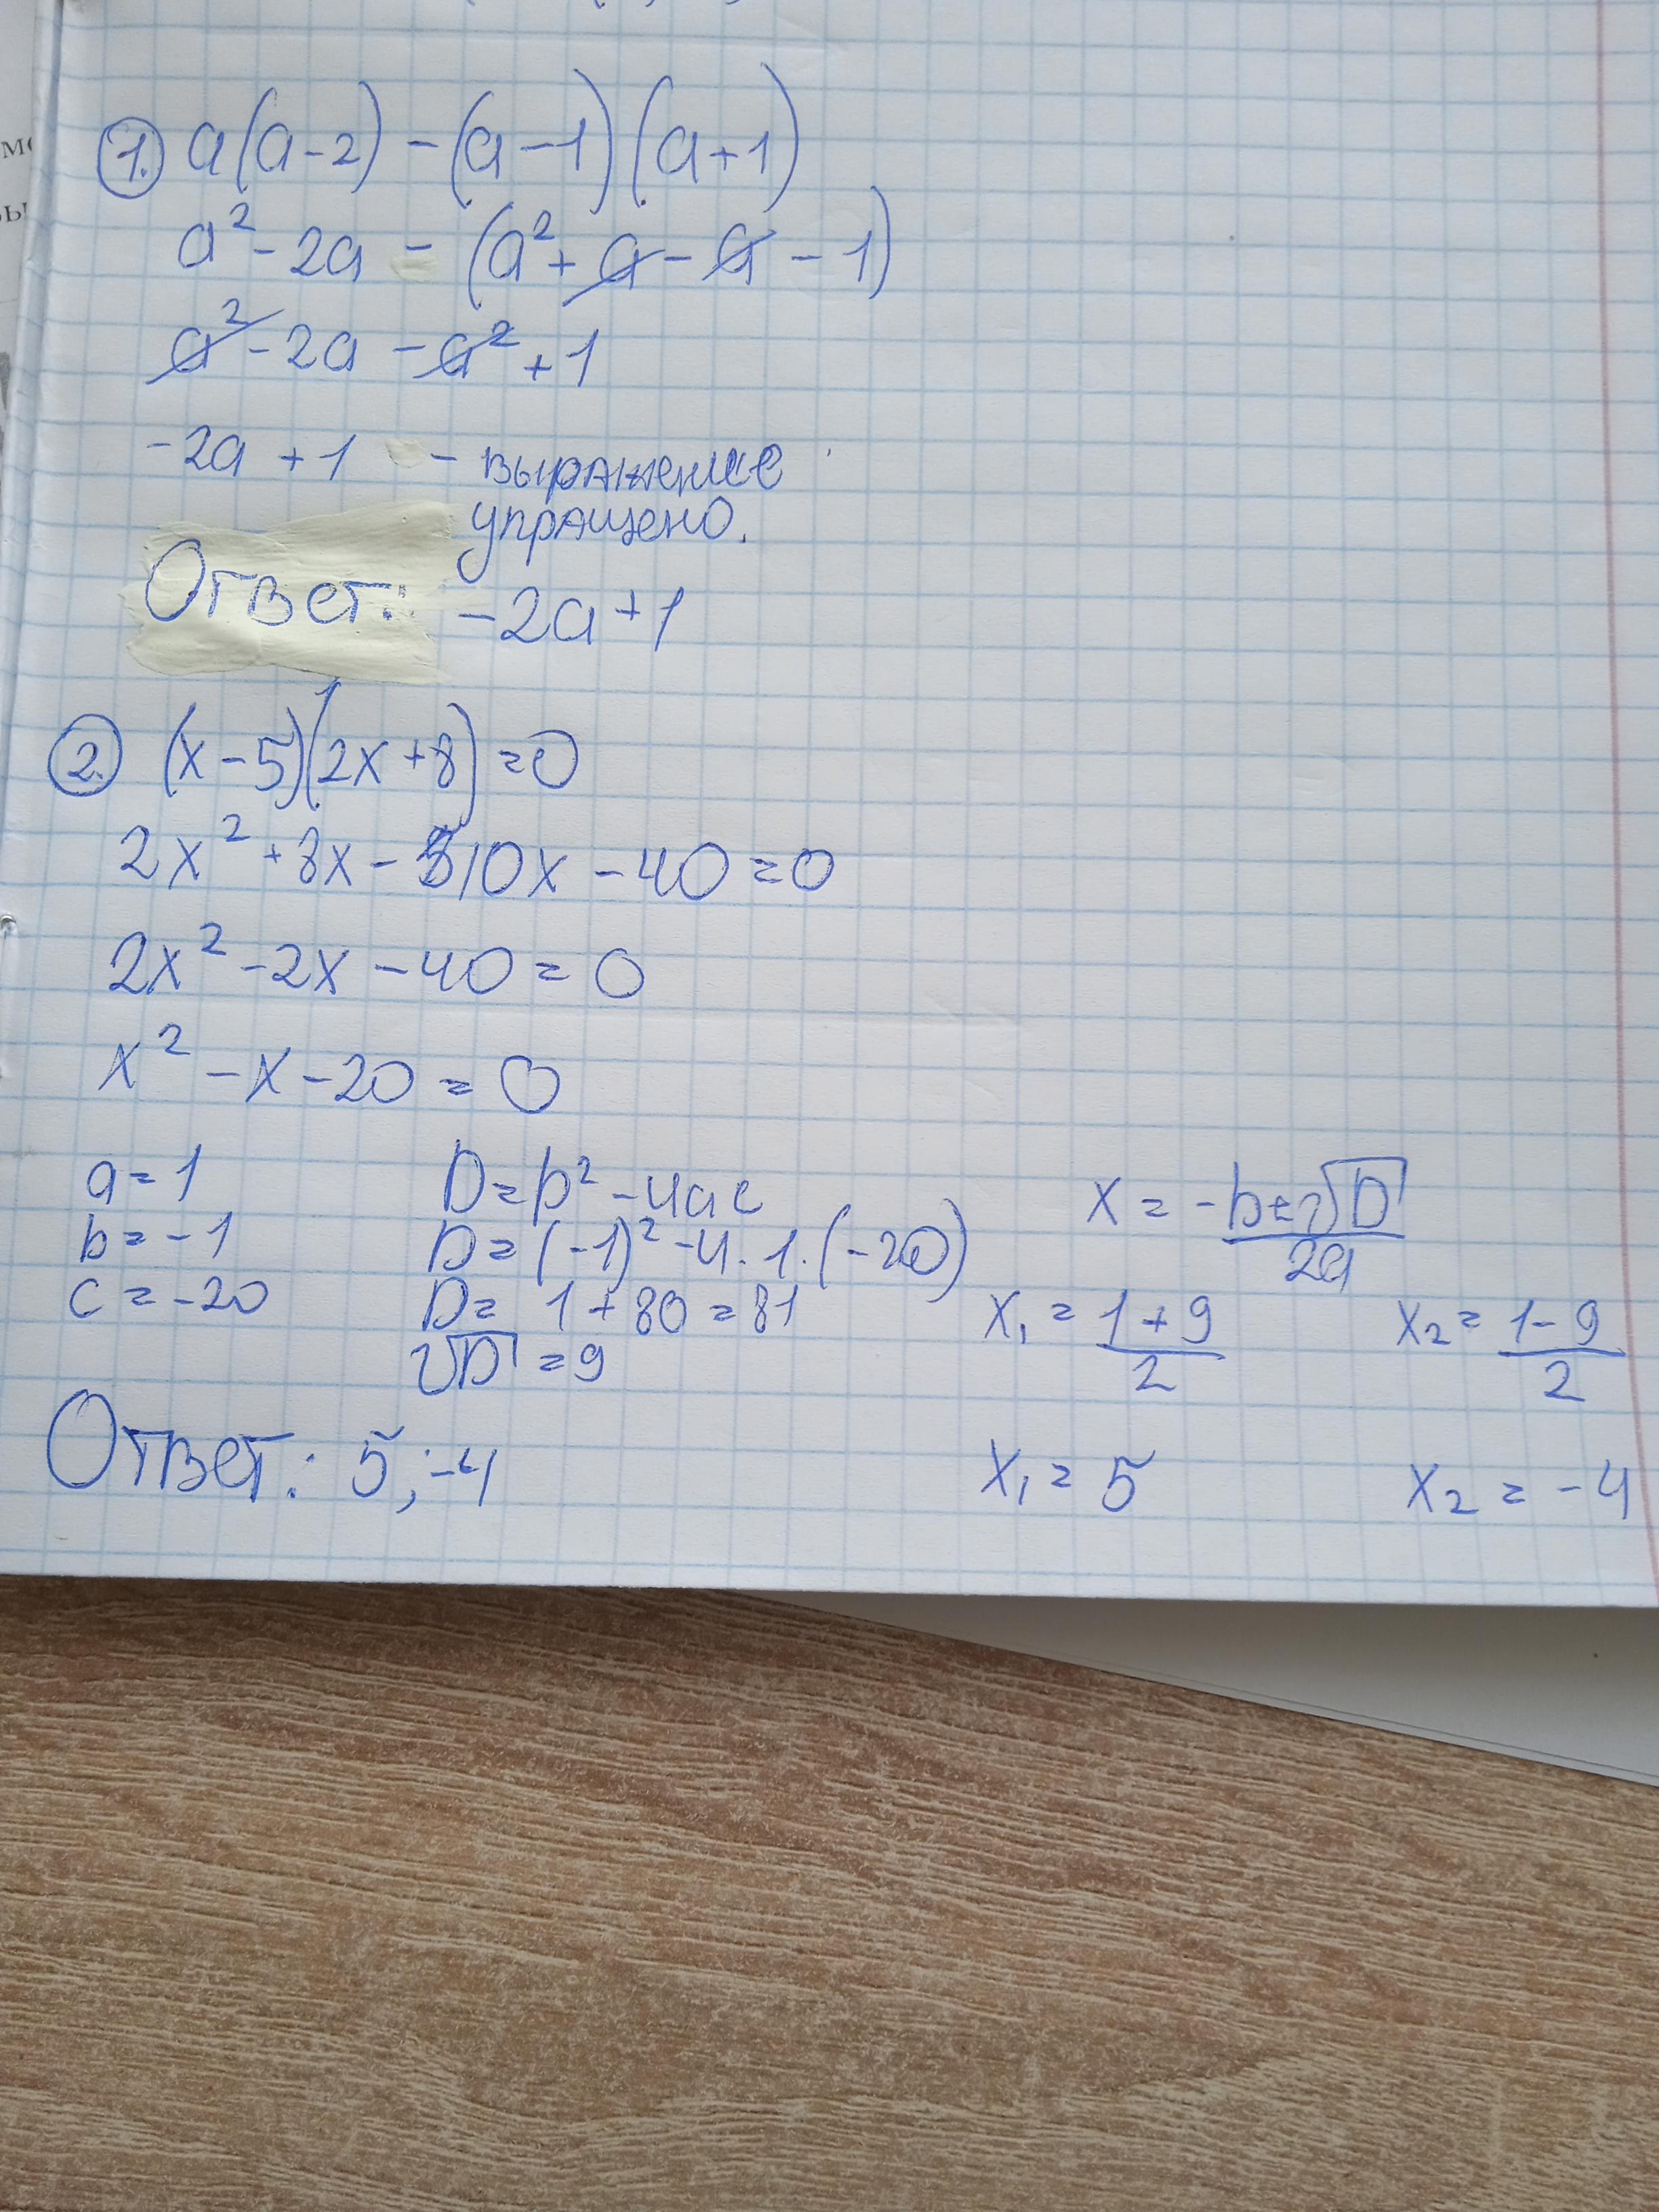 1. a(a-2) - (a-1)(a+1)
a² - 2a - (a² + a - a - 1)
a² - 2a - a² + 1
-2a + 1 - выражение
упращено.
Ответ: -2a+1
2. (x-5)(2x+8)=0
2x² + 8x - 10x - 40 = 0
2x² - 2x - 40 = 0
x² - x - 20 = 0
a = 1
b = -1
c = -20
D = b² - 4ac
D = (-1)² - 4 · 1 · (-20)
D = 1 + 80 = 81
√D = 9
x = -b±√D / 2a
x₁ = 1+9 / 2
x₂ = 1-9 / 2
x₁ = 5
x₂ = -4
Ответ: 5; -4